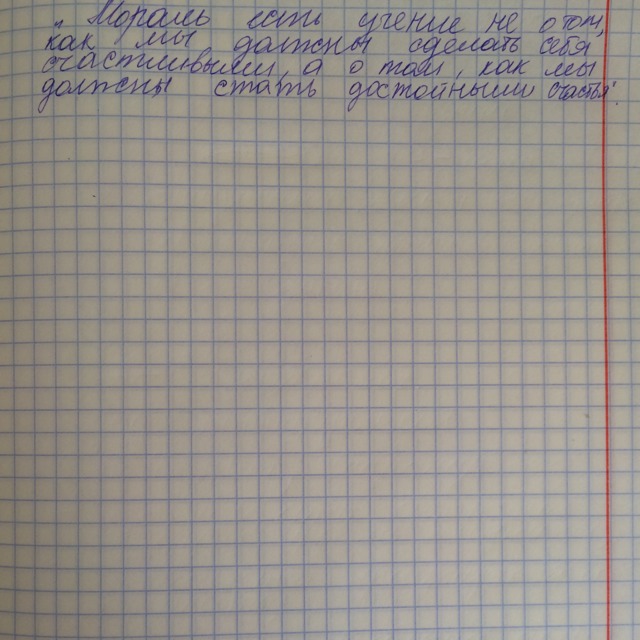 Мораль есть учение не о том,
как мы должны сделать себя
счастливыми, а о том, как мы
должны стать достойными счастья.